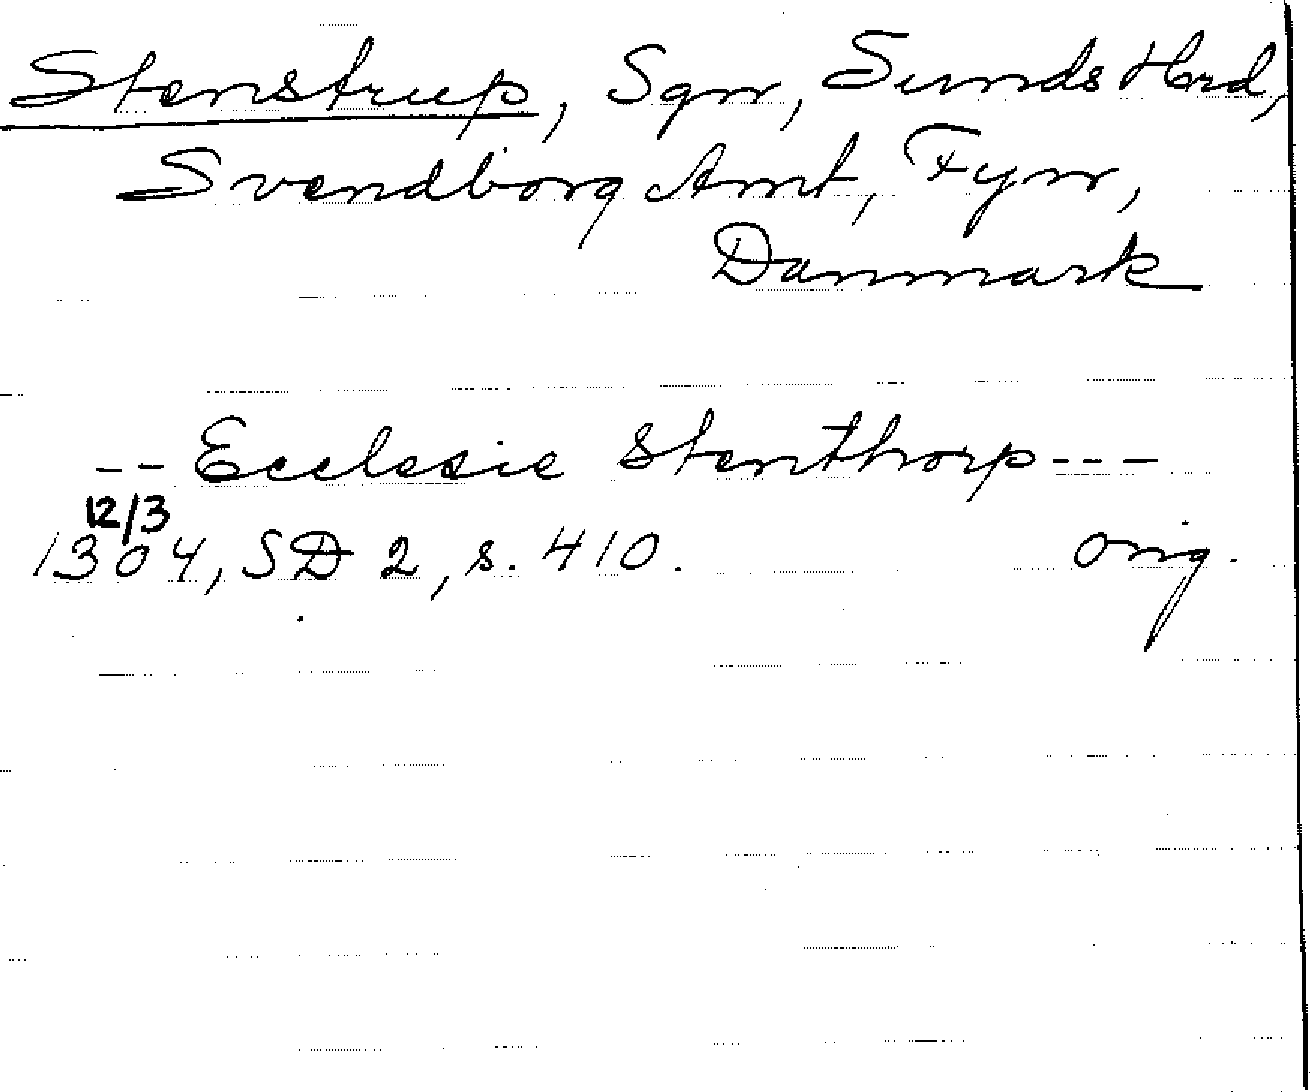 Stenstrup, Sgn, Sunds Hrd,
Svendborg Amt, Fyn,
Danmark
-- Ecclesie Stenthorp ---
12/3
1304, SD 2, s. 410. orig.